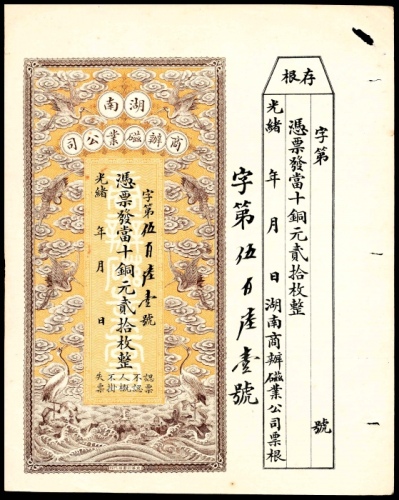 存根
字第 號
憑票發當十銅元貳拾枚整
光緒 年 月 日湖南商辦磁業公司票根
字第伍百陸壹號
湖南
商辦磁業公司
字第伍百陸壹號
憑票發當十銅元貳拾枚整
光緒 年 月 日
認票
不認
人概
不掛
失票